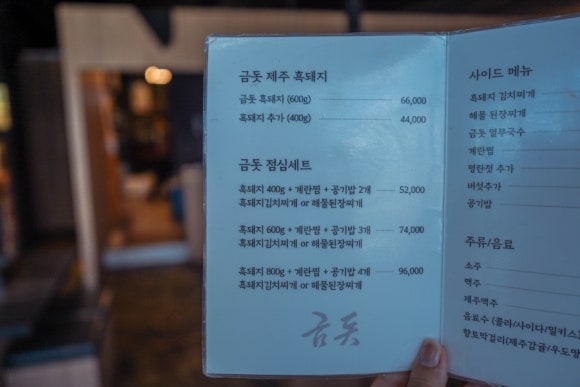 금돗 제주 흑돼지
금돗 흑돼지 (600g) 66,000
흑돼지 추가 (400g) 44,000
금돗 점심세트
흑돼지 400g + 계란찜 + 공기밥 2개 52,000
흑돼지김치찌개 or 해물된장찌개
흑돼지 600g + 계란찜 + 공기밥 3개 74,000
흑돼지김치찌개 or 해물된장찌개
흑돼지 800g + 계란찜 + 공기밥 4개 96,000
흑돼지김치찌개 or 해물된장찌개
금돗
사이드 메뉴
흑돼지 김치찌개
해물 된장찌개
금돗 열무국수
계란찜
명란젓 추가
버섯추가
공기밥
주류/음료
소주
맥주
제주맥주
음료수 (콜라/사이다/밀키스)
향토막걸리(제주감귤/우도땅